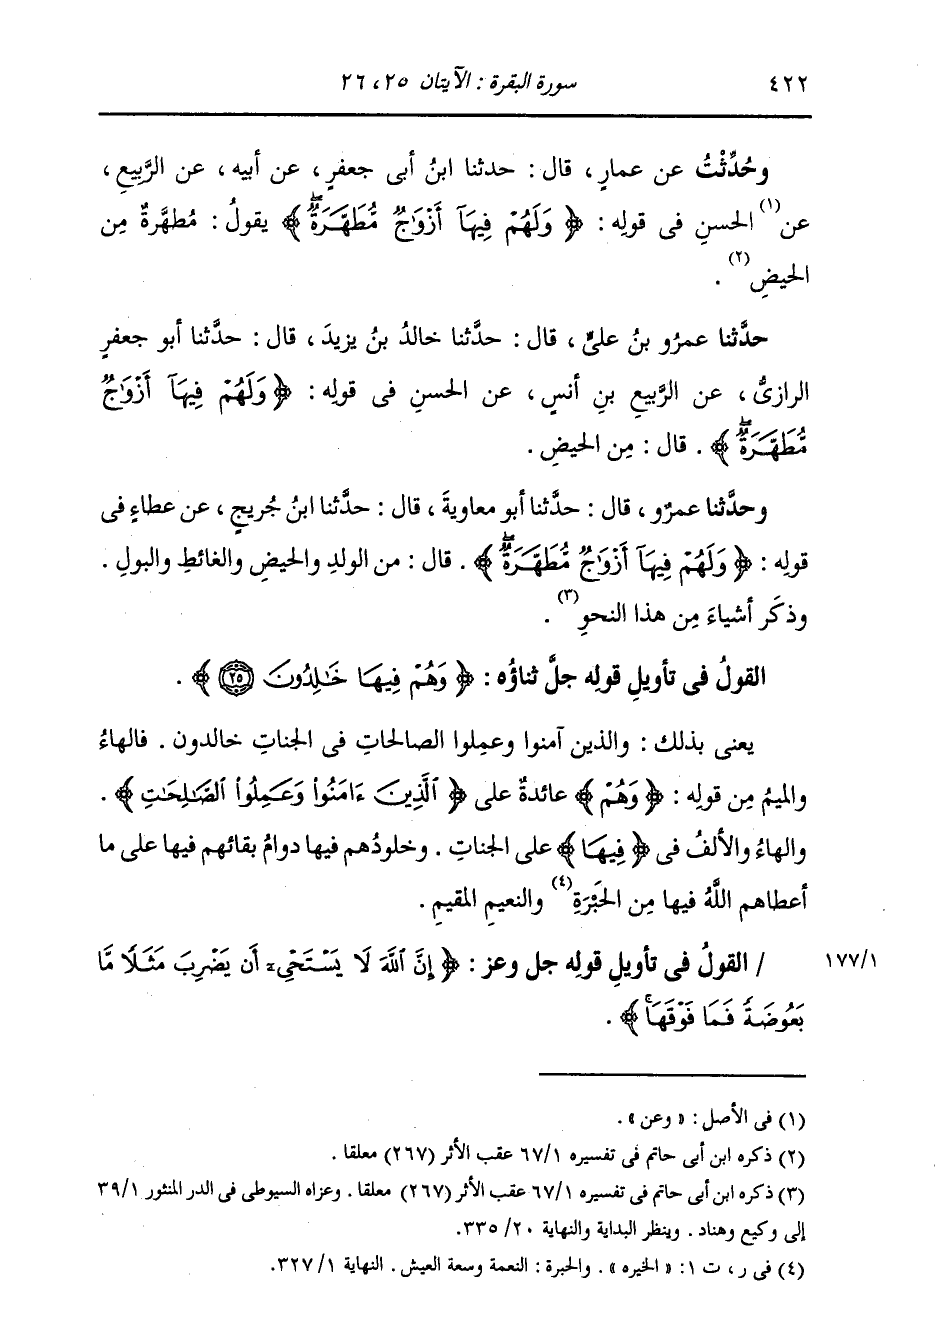 ٤٢٢ سورة البقرة : الآيتان ٢٥ ، ٢٦
وحُدِّثْتُ عن عمارٍ ، قال : حدثنا ابنُ أبى جعفرٍ ، عن أبيه ، عن الرَّبيعِ ،
عن(١) الحسنِ فى قولِه : ﴿ وَلَهُمْ فِيهَآ أَزْوَٰجٌ مُّطَهَّرَةٌۖ ﴾ يقولُ : مُطهَّرةٌ مِن
الحيضِ(٢) .
حدَّثنا عمرُو بنُ علىٍّ ، قال : حدَّثنا خالدُ بنُ يزيدَ ، قال : حدَّثنا أبو جعفرٍ
الرازىُّ ، عن الرَّبيعِ بنِ أنسٍ ، عن الحسنِ فى قولِه : ﴿ وَلَهُمْ فِيهَآ أَزْوَٰجٌ
مُّطَهَّرَةٌۖ ﴾ . قال : مِن الحيضِ .
وحدَّثنا عمرٌو ، قال : حدَّثنا أبو معاويةَ ، قال : حدَّثنا ابنُ جُريجٍ ، عن عطاءٍ فى
قولِه : ﴿ وَلَهُمْ فِيهَآ أَزْوَٰجٌ مُّطَهَّرَةٌۖ ﴾ . قال : من الولدِ والحيضِ والغائطِ والبولِ .
وذكَر أشياءَ مِن هذا النحوِ(٣) .
القولُ فى تأويلِ قولِه جلَّ ثناؤُه : ﴿ وَهُمْ فِيهَا خَٰلِدُونَ ٢٥ ﴾ .
يعنى بذلك : والذين آمنوا وعمِلوا الصالحاتِ فى الجناتِ خالدون . فالهاءُ
والميمُ مِن قولِه : ﴿ وَهُمْ ﴾ عائدةٌ على ﴿ ٱلَّذِينَ ءَامَنُوا۟ وَعَمِلُوا۟ ٱلصَّٰلِحَٰتِ ﴾ .
والهاءُ والألفُ فى ﴿ فِيهَا ﴾ على الجناتِ . وخلودُهم فيها دوامُ بقائهم فيها على ما
أعطاهم اللَّهُ فيها مِن الحَبْرَةِ(٤) والنعيمِ المقيمِ .
/ القولُ فى تأويلِ قولِه جل وعز : ﴿ إِنَّ ٱللَّهَ لَا يَسْتَحْىِۦٓ أَن يَضْرِبَ مَثَلًا مَّا ١٧٧/١
بَعُوضَةً فَمَا فَوْقَهَاۚ ﴾ .
(١) فى الأصل : « وعن » .
(٢) ذكره ابن أبى حاتم فى تفسيره ٦٧/١ عقب الأثر (٢٦٧) معلقا .
(٣) ذكره ابن أبى حاتم فى تفسيره ٦٧/١ عقب الأثر (٢٦٧) معلقا . وعزاه السيوطى فى الدر المنثور ٣٩/١
إلى وكيع وهناد . وينظر البداية والنهاية ٢٠/ ٣٣٥.
(٤) فى ر ، ت ١: « الخيره » . والحبرة : النعمة وسعة العيش . النهاية ١/ ٣٢٧.